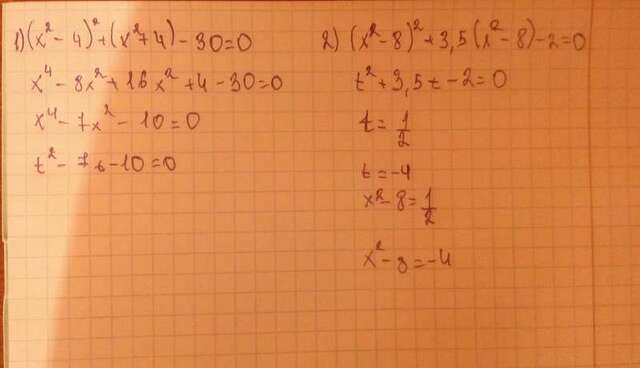 1) (x² - 4)² + (x² + 4) - 30 = 0
x⁴ - 8x² + 16 x² + 4 - 30 = 0
x⁴ - 7x² - 10 = 0
t² - 7t - 10 = 0
2) (x² - 8)² + 3,5(x² - 8) - 2 = 0
t² + 3,5t - 2 = 0
t = 1/2
t = -4
x² - 8 = 1/2
x² - 8 = -4